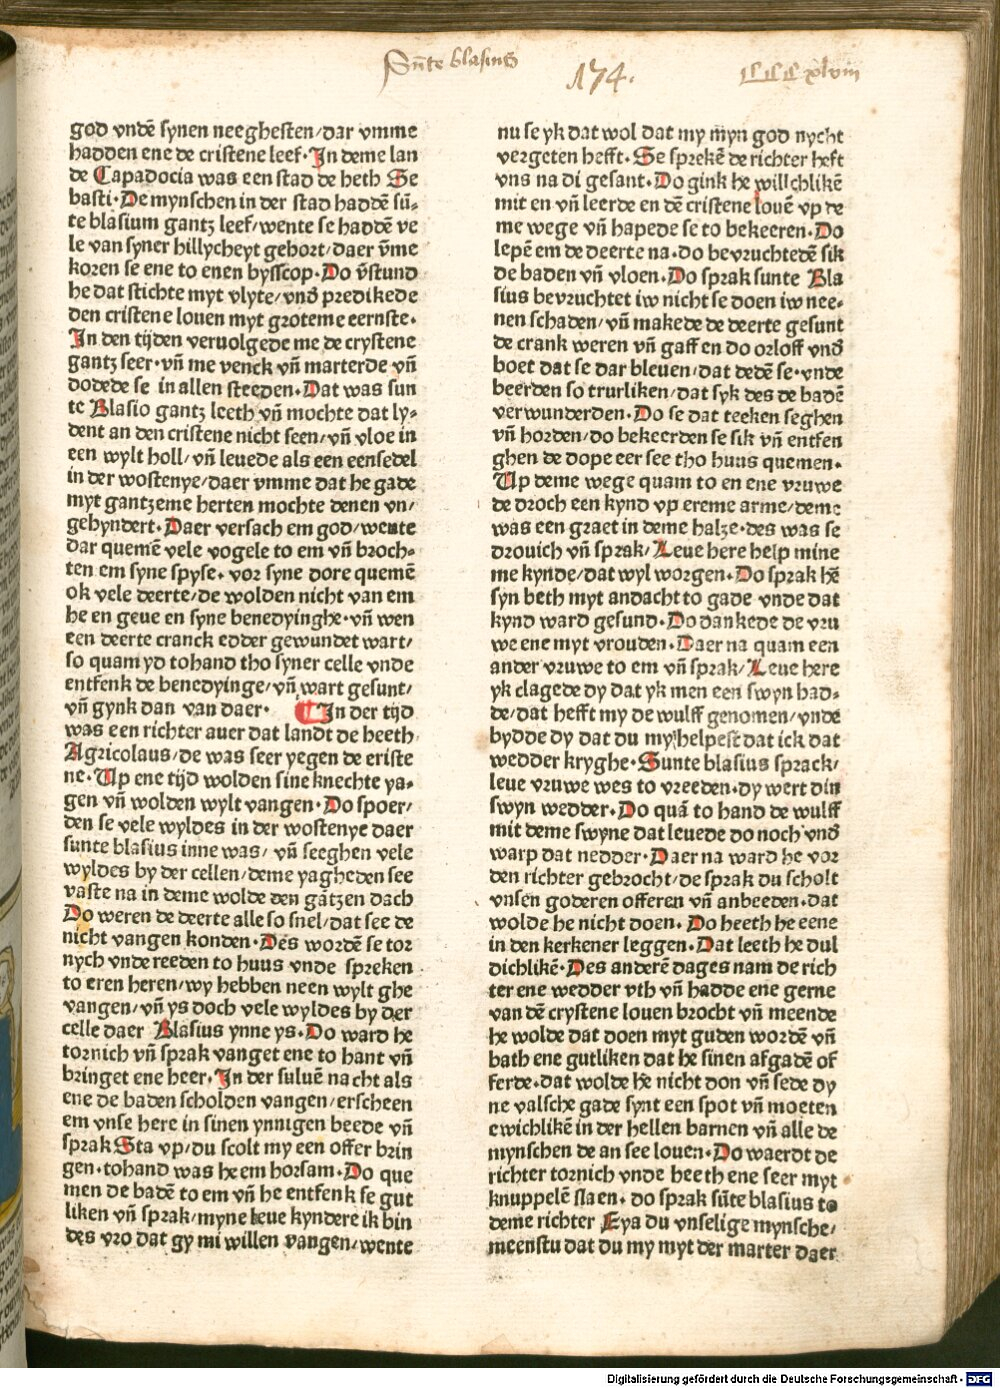 Sūte blasius
174.
CCCxlviii
god vndē synen neeghesten/dar vmme
hadden ene de cristene leef. In deme lan
de Capadocia was een stad de heth Se
basti. De mynschen in der stad haddē sū-
te blasium gantz leef/wente se haddē ve
le van syner hillycheyt gehort/daer v̄me
koren se ene to enen bysscop. Do v̄stund
he dat stichte myt vlyte/vnd̄ predikede
den cristene louen myt groteme eernste.
In den tijden veruolgede me de crystene
gantz seer. vn̄ me venck vn̄ marterde vn̄
dodede se in allen steeden. Dat was sun
te Blasio gantz leeth vn̄ mochte dat ly-
dent an den cristene nicht seen/vn̄ vloe in
een wylt holl/vn̄ leuede als een eensedel
in der wostenye/daer vmme dat he gade
myt gantzeme herten mochte denen vn/
gehyndert. Daer versach em god/wente
dar quemē vele vogele to em vn̄ broch-
ten em syne spyse. vor syne dore quemē
ok vele deerte/de wolden nicht van em
he en geue en syne benedyinghe. vn̄ wen
een deerte cranck edder gewundet wart/
so quam yd tohand tho syner celle vnde
entfenk de benedyinge/vn̄ wart gesunt/
vn̄ gynk dan van daer. In der tijd
was een richter auer dat landt de heeth
Agricolaus/de was seer yegen de criste
ne. Up ene tijd wolden sine knechte ya-
gen vn̄ wolden wylt vangen. Do spoer/
den se vele wyldes in der wostenye daer
sunte blasius inne was/ vn̄ seeghen vele
wyldes by der cellen/deme yagheden see
vaste na in deme wolde den gātzen dach
Do weren de deerte alle so snel/dat see de
nicht vangen konden. Des wordē se tor
nych vnde reeden to huus vnde spreken
to eren heren/wy hebben neen wylt ghe
vangen/vn̄ ys doch vele wyldes by der
celle daer Blasius ynne ys. Do ward he
tornich vn̄ sprak vanget ene to hant vn̄
bringet ene heer. In der suluē nacht als
ene de baden scholden vangen/erscheen
em vnse here in sinen ynnigen beede vn̄
sprak Sta vp/du scolt my een offer brin
gen. tohand was he em horsam. Do que
men de badē to em vn̄ he entfenk se gut
liken vn̄ sprak/myne leue kyndere ik bin
des vro dat gy mi willen vangen/wente
nu se yk dat wol dat my myn god nycht
vergeten hefft. Se sprekē de richter heft
vns na di gesant. Do gink he willchlikē
mit en vn̄ leerde en dē cristene louē vp de
me wege vn̄ hapede se to bekeeren. Do
lepē em de deerte na. do bevruchtedē sik
de baden vn̄ vloen. Do sprak sunte Bla
sius bevruchtet iw nicht se doen iw nee-
nen schaden/vn̄ makede de deerte gesunt
de crank weren vn̄ gaff en do orloff vnd̄
boet dat se dar bleuen/dat dedē se. vnde
beerden so trurliken/dat syk des de badē
verwunderden. Do se dat teeken seghen
vn̄ horden/do bekeerden se sik vn̄ entfen
ghen de dope eer see tho huus quemen.
Up deme wege quam to en ene vruwe
de droch een kynd vp ereme arme/deme
was een graet in deme halze. des was se
drouich vn̄ sprak/Leue here help mine
me kynde/dat wyl worgen. Do sprak he
syn beth myt andacht to gade vnde dat
kynd ward gesund. Do dankede de vru
we ene myt vrouden. Daer na quam een
ander vruwe to em vn̄ sprak/Leue here
yk clagede dy dat yk men een swyn had-
de/dat hefft my de wulff genomen/vnde
bydde dy dat du my helpest dat ick dat
wedder kryghe. Sunte blasius sprack/
leue vruwe wes to vreeden. dy wert din
swyn wedder. Do quā to hand de wulff
mit deme swyne dat leuede do noch vnd̄
warp dat nedder. Daer na ward he vor
den richter gebrocht/de sprak du scholt
vnsen goderen offeren vn̄ anbeeden. dat
wolde he nicht doen. Do heeth he eene
in den kerkener leggen. Dat leeth he dul
dichlikē. Des anderē dages nam de rich
ter ene wedder vth vn̄ hadde ene gerne
van dē crystene louen brocht vn̄ meende
he wolde dat doen myt guden wordē vn̄
bath ene gutliken dat he sinen afgadē of
ferde. dat wolde he nicht don vn̄ sede dy
ne valsche gade synt een spot vn̄ moeten
ewichlikē in der hellen barnen vn̄ alle de
mynschen de an see louen. Do waerdt de
richter tornich vnde heeth ene seer myt
knuppelē slaen. do sprak sūte blasius to
deme richter Eya du vnselige mynsche/
meenstu dat du my myt der marter daer
Digitalisierung gefördert durch die Deutsche Forschungsgemeinschaft - DFG